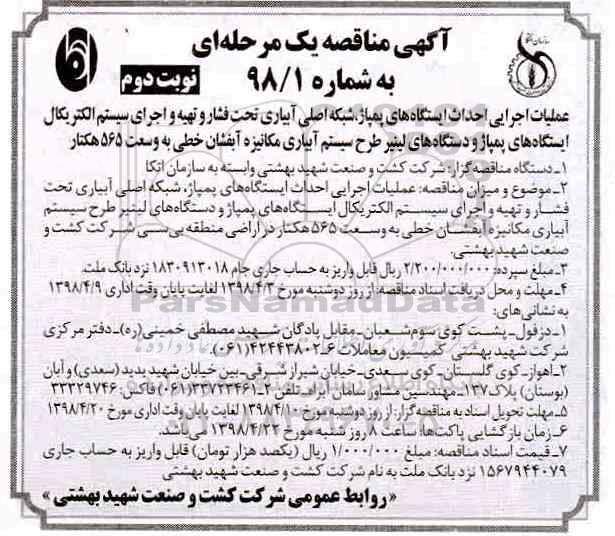 آگهی مناقصه یک مرحله‌ای
به شماره ۹۸/۱
نوبت دوم
عملیات اجرایی احداث ایستگاه‌های پمپاژ، شبکه اصلی آبیاری تحت فشار و تهیه و اجرای سیستم الکتریکال
ایستگاه‌های پمپاژ و دستگاه‌های لینیر طرح سیستم آبیاری مکانیزه آبفشان خطی به وسعت ۵۶۵ هکتار
۱ـ دستگاه مناقصه‌گزار: شرکت کشت و صنعت شهید بهشتی وابسته به سازمان اتکا
۲ـ موضوع و میزان مناقصه: عملیات اجرایی احداث ایستگاه‌های پمپاژ، شبکه اصلی آبیاری تحت
فشار و تهیه و اجرای سیستم الکتریکال ایستگاه‌های پمپاژ و دستگاه‌های لینیر طرح سیستم
آبیاری مکانیزه آبفشان خطی به وسعت ۵۶۵ هکتار در اراضی منطقه بی‌سی شرکت کشت و
صنعت شهید بهشتی.
۳ـ مبلغ سپرده: ۲/۲۰۰/۰۰۰/۰۰۰ ریال قابل واریز به حساب جاری جام ۱۸۳۰۹۱۳۰۱۸ نزد بانک ملت.
۴ـ مهلت و محل دریافت اسناد مناقصه: از روز دوشنبه مورخ ۱۳۹۸/۴/۳ لغایت پایان وقت اداری ۱۳۹۸/۴/۹
به نشانی‌های:
۱ـ دزفول ـ پشت کوی سوم شعبان ـ مقابل پادگان شهید مصطفی خمینی(ره) ـ دفتر مرکزی
شرکت شهید بهشتی کمیسیون معاملات ۶ـ۴۲۴۴۳۸۰۲(۰۶۱).
۲ـ اهواز ـ کوی گلستان ـ کوی سعدی ـ خیابان شیراز شرقی ـ بین خیابان شهید پدید (سعدی) و آبان
(بوستان) پلاک ۱۳۷ ـ مهندسین مشاور سامان آبراه تلفن ۲ـ۳۳۷۲۳۴۶۱(۰۶۱) فاکس: ۳۳۳۲۹۷۴۶
۵ـ مهلت تحویل اسناد به مناقصه‌گزار: از روز دوشنبه مورخ ۱۳۹۸/۴/۱۰ لغایت پایان وقت اداری مورخ ۱۳۹۸/۴/۲۰
۶ـ زمان بازگشایی پاکت‌ها: ساعت ۸ روز شنبه مورخ ۱۳۹۸/۴/۲۲ می‌باشد.
۷ـ قیمت اسناد مناقصه: مبلغ ۱/۰۰۰/۰۰۰ ریال (یکصد هزار تومان) قابل واریز به حساب جاری
۱۵۶۷۹۴۴۰۷۹ نزد بانک ملت به نام شرکت کشت و صنعت شهید بهشتی
«روابط عمومی شرکت کشت و صنعت شهید بهشتی»
ParsNamadData